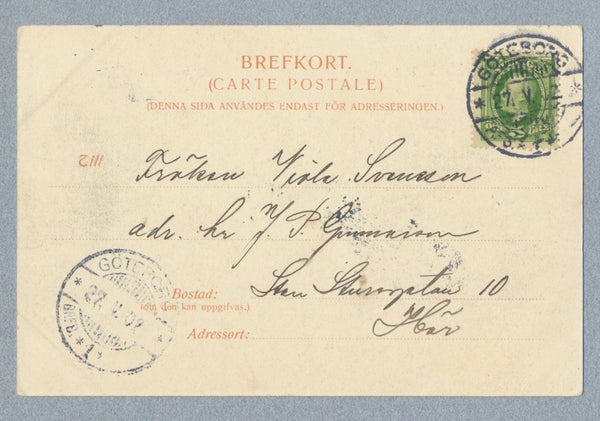 BREFKORT.
(CARTE POSTALE)
(DENNA SIDA ANVÄNDES ENDAST FÖR ADRESSERINGEN.)
GÖTEBORG
Till Fröken Viola Svensson
adr. hr J. P. Gunnarson
Bostad: Sten Sturegatan 10
(om den kan uppgifvas.)
Här
Adressort:
GÖTEBORG
27. V. 02